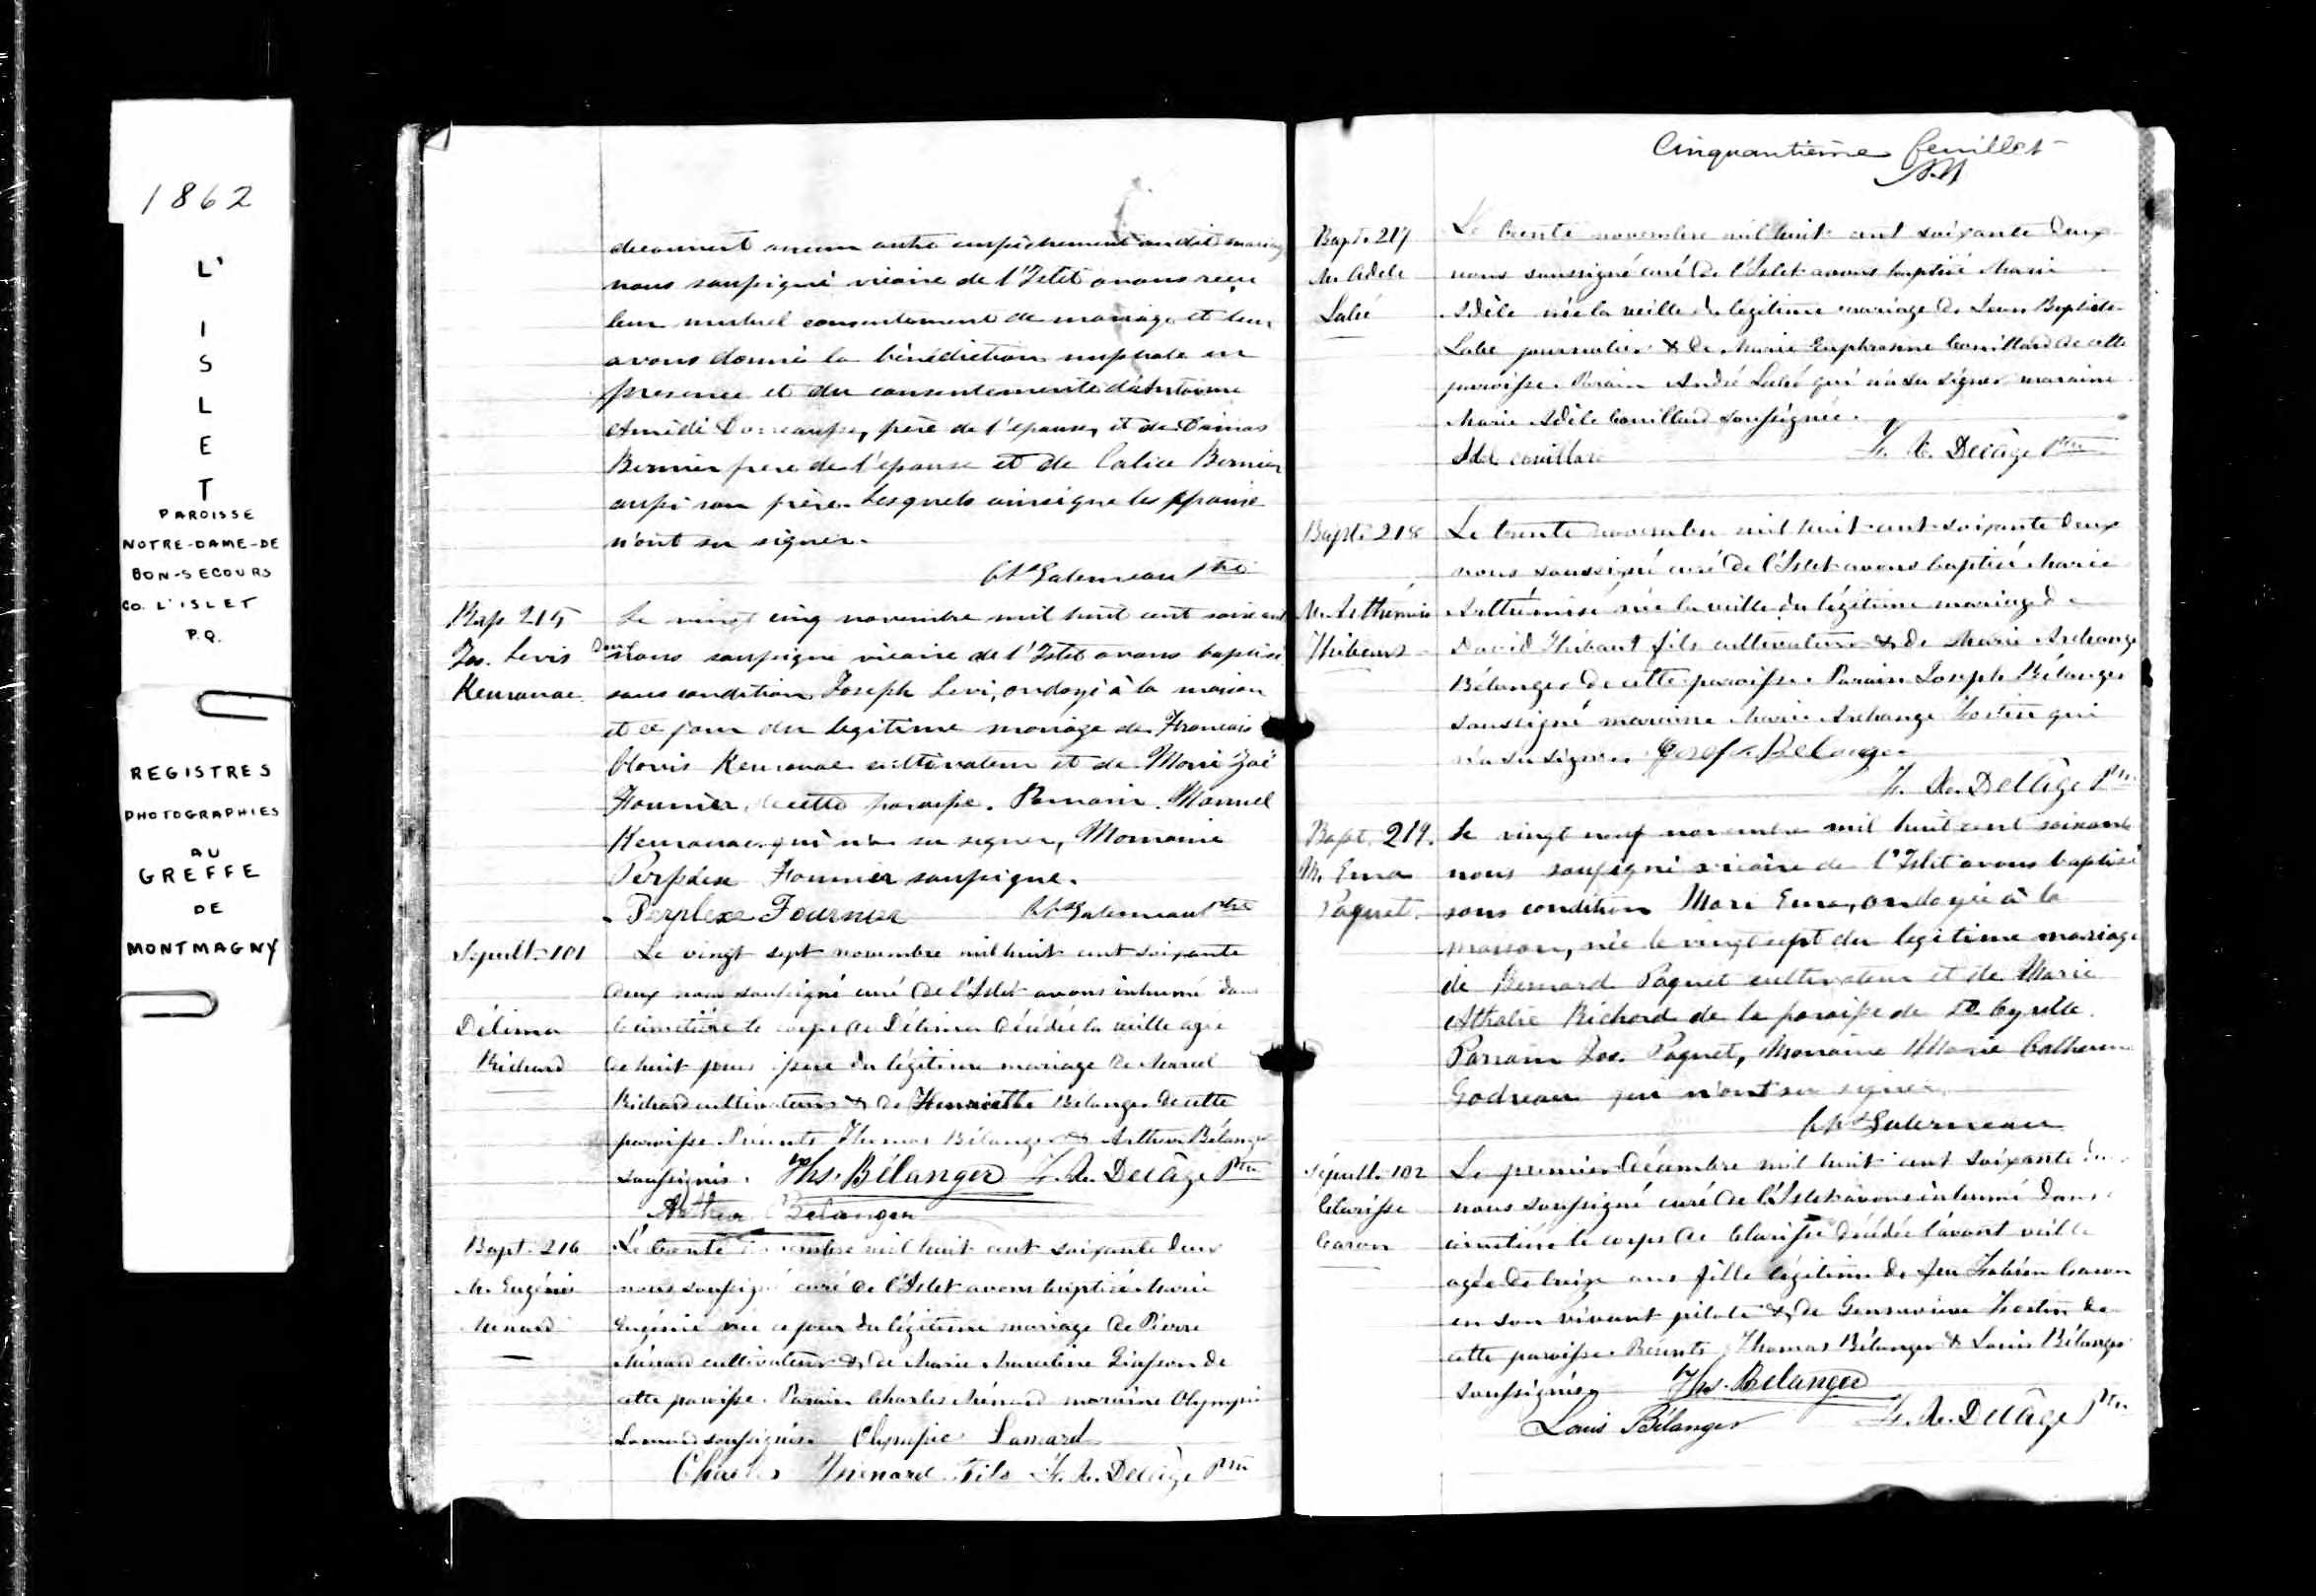 1862
L'
I
S
L
E
T
PAROISSE
NOTRE-DAME-DE
BON-SECOURS
CO. L'ISLET
P.Q.
REGISTRES
PHOTOGRAPHIES
AU
GREFFE
DE
MONTMAGNY
decouvert aucun autre empêchement audit mariage
nous soussigné vicaire de l'Islet avons reçu
leur mutuel consentement de mariage et leur
avons donné la bénédiction nuptiale en
presence et du consentement d'Antoine
Amédé père de l'epouse, et de Damas
Bernier frere de l'epouse et de Calice Bernier
aussi son frère. Lesquels ainsi que les epoux
n'ont su signer.
Ptre
Bap 215
Jos. Levis
Keurouac
Le vingt cinq novembre mil huit cent soixante
Deux nous soussigné vicaire de l'Islet avons baptisé
sous condition Joseph Levi, ondoyé à la maison
et ce jour du legitime mariage de Francois
Clovis Keurouac cultivateur et de Marie Zoé
Fournier, de cette paroisse. Parrain Manuel
Keurouac qui n'a su signer, Marraine
Perplexe Fournier soussigné.
Perplexe Fournier Ptre
Sepult. 101
Délima
Richard
Le vingt sept novembre mil huit cent soixante
deux nous soussigné curé de l'Islet avons inhumé dans
le cimetière le corps de Délima décédée la veille agée
de huit jours du légitime mariage de Marcel
Richard cultivateur & de Henriette Bélanger de cette
paroisse. Présents Thomas Bélanger & Arthur Bélanger
soussignés. Ths. Bélanger F. X. Delâge Ptre
Arthur Bélanger
Bapt. 216
M. Eugénie
Menard
Le trente novembre mil huit cent soixante deux
nous soussigné curé de l'Islet avons baptisé Marie
Eugénie née ce jour du légitime mariage de Pierre
Ménard cultivateur & de Marie Marceline Giasson de
cette paroisse. Parain Charles Ménard maraine Olympie
Lamard soussignés. Olympie Lamard
Charles Menard fils F. X. Delâge Ptre
Cinquantième feuillet
Bapt. 217
M. Adele
Labé
Le trente novembre mil huit cent soixante deux
nous soussigné curé de l'Islet avons baptisé Marie
Adèle née la veille du legitime mariage de Jean Baptiste
Labé journalier & de Marie Euphrosine Couillard de cette
paroisse. Parain André Labé qui n'a su signer maraine
Marie Adèle Couillard soussignée.
Adel couillard F. X. Delâge Ptre
Bapt. 218
M. Arthémise
Thibault
Le trente novembre mil huit cent soixante deux
nous soussigné curé de l'Islet avons baptisé Marie
Arthémise née la veille du légitime mariage de
David Thibaut fils cultivateur & de Marie Archange
Bélanger de cette paroisse. Parain Joseph Bélanger
soussigné maraine Marie Archange Fortin qui
n'a su signer. Josef Belanger
F. X. Delâge Ptre
Bapt. 219.
M. Ema
Paquet
Le vingt neuf novembre mil huit cent soixante
nous soussigné vicaire de l'Islet avons baptisé
sous condition Marie Ema, ondoyée à la
maison, née le vingt sept du legitime mariage
de Bernard Paquet cultivateur et de Marie
Athalie Richard de la paroisse de St Cyrille.
Parrain Jos. Paquet, Marraine Marie Catherine
Godreau qui n'ont su signer
Sépult. 102
Clarisse
Caron
Le premier Décembre mil huit cent soixante deux
nous soussigné curé de l'Islet avons inhumé dans
cimetière le corps de Clarisse décédée l'avant veille
agée de treize ans fille légitime de feu Fabien Caron
en son vivant pilote & de Genevieve Fortin de
cette paroisse. Présents Thomas Bélanger & Louis Bélanger
soussignés Ths. Bélanger
Louis Bélanger F. X. Delâge Ptre